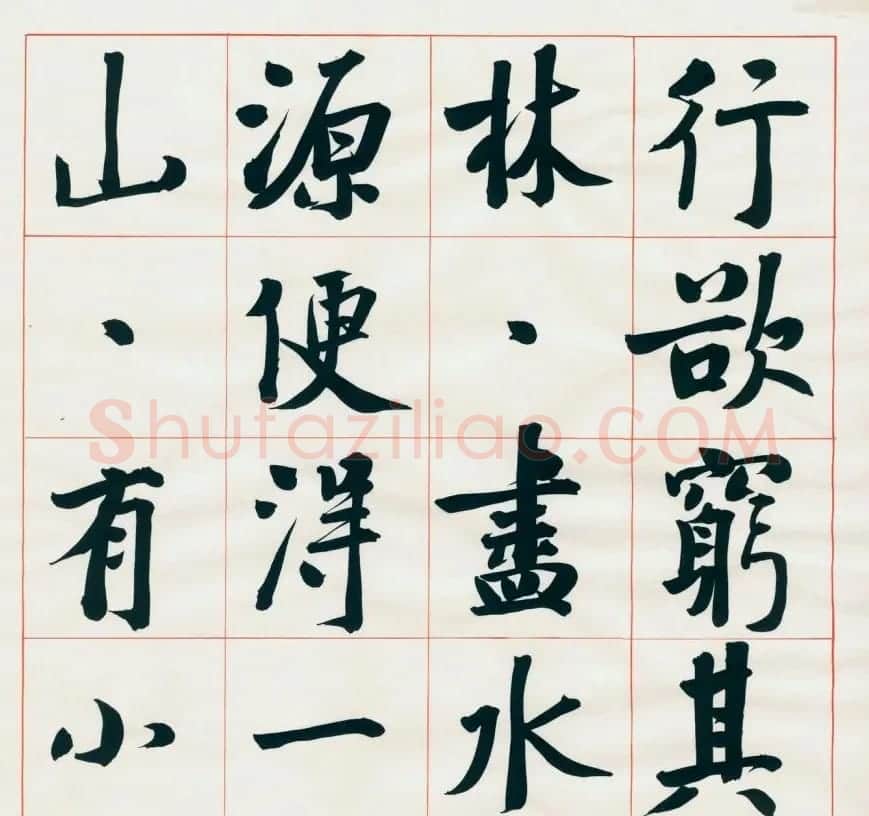 行欲窮其
林·盡水
源便得一
山·有小
Shufaziliao.COM